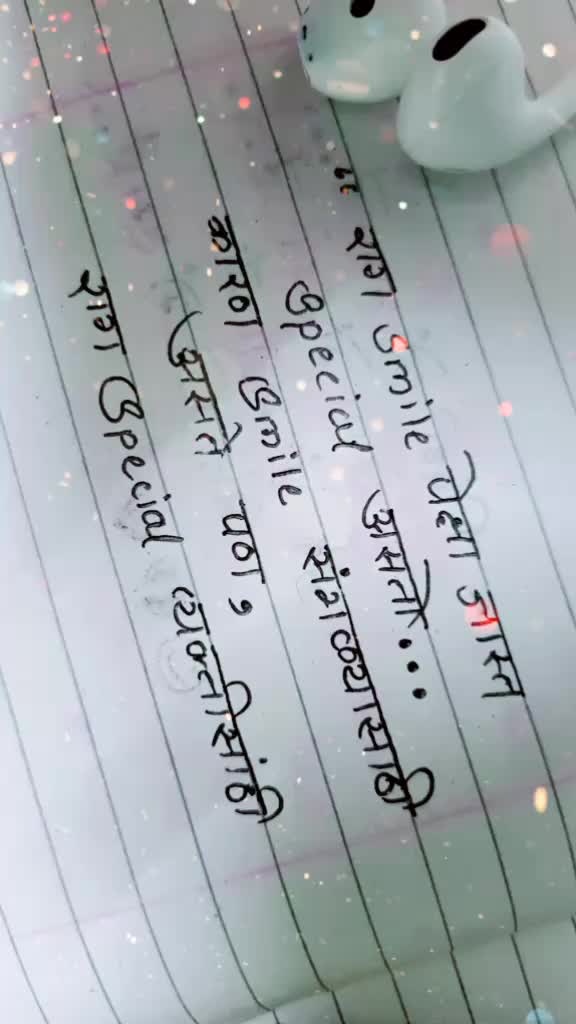 “ राग Smile पेक्षा जास्त
Special असतो...
कारण Smile संगळ्यासाठी
असते पण,
राग Special व्यक्तीसांठी